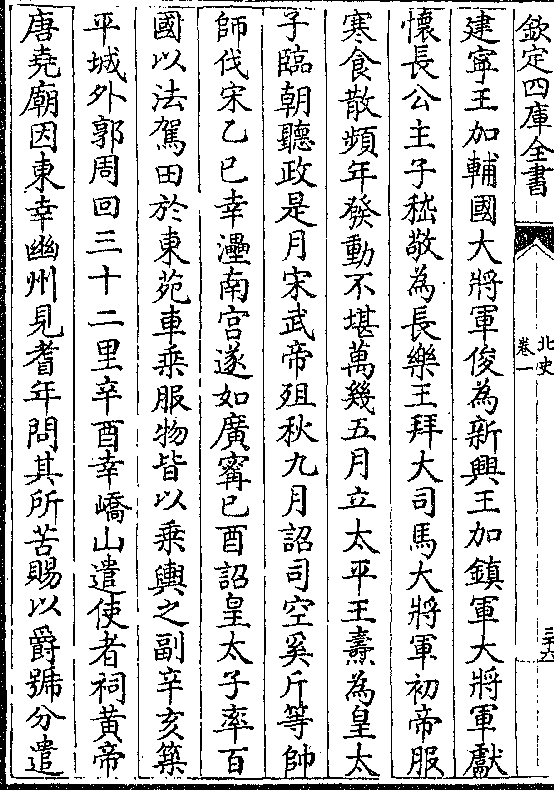 欽定四庫全書
北史
卷一
三十六
建寧王加輔國大將軍俊為新興王加鎮軍大將軍獻
懷長公主子嵇敬為長樂王拜大司馬大將軍初帝服
寒食散頻年發動不堪萬幾五月立太平王燾為皇太
子臨朝聽政是月宋武帝殂秋九月詔司空奚斤等帥
師伐宋乙巳幸㶟南宫遂如廣寗己酉詔皇太子率百
國以法駕田於東苑車乘服物皆以乘輿之副辛亥築
平城外郭周回三十二里辛酉幸嶠山遣使者祠黄帝
唐堯廟因東幸幽州見耆年問其所苦賜以爵號分遣